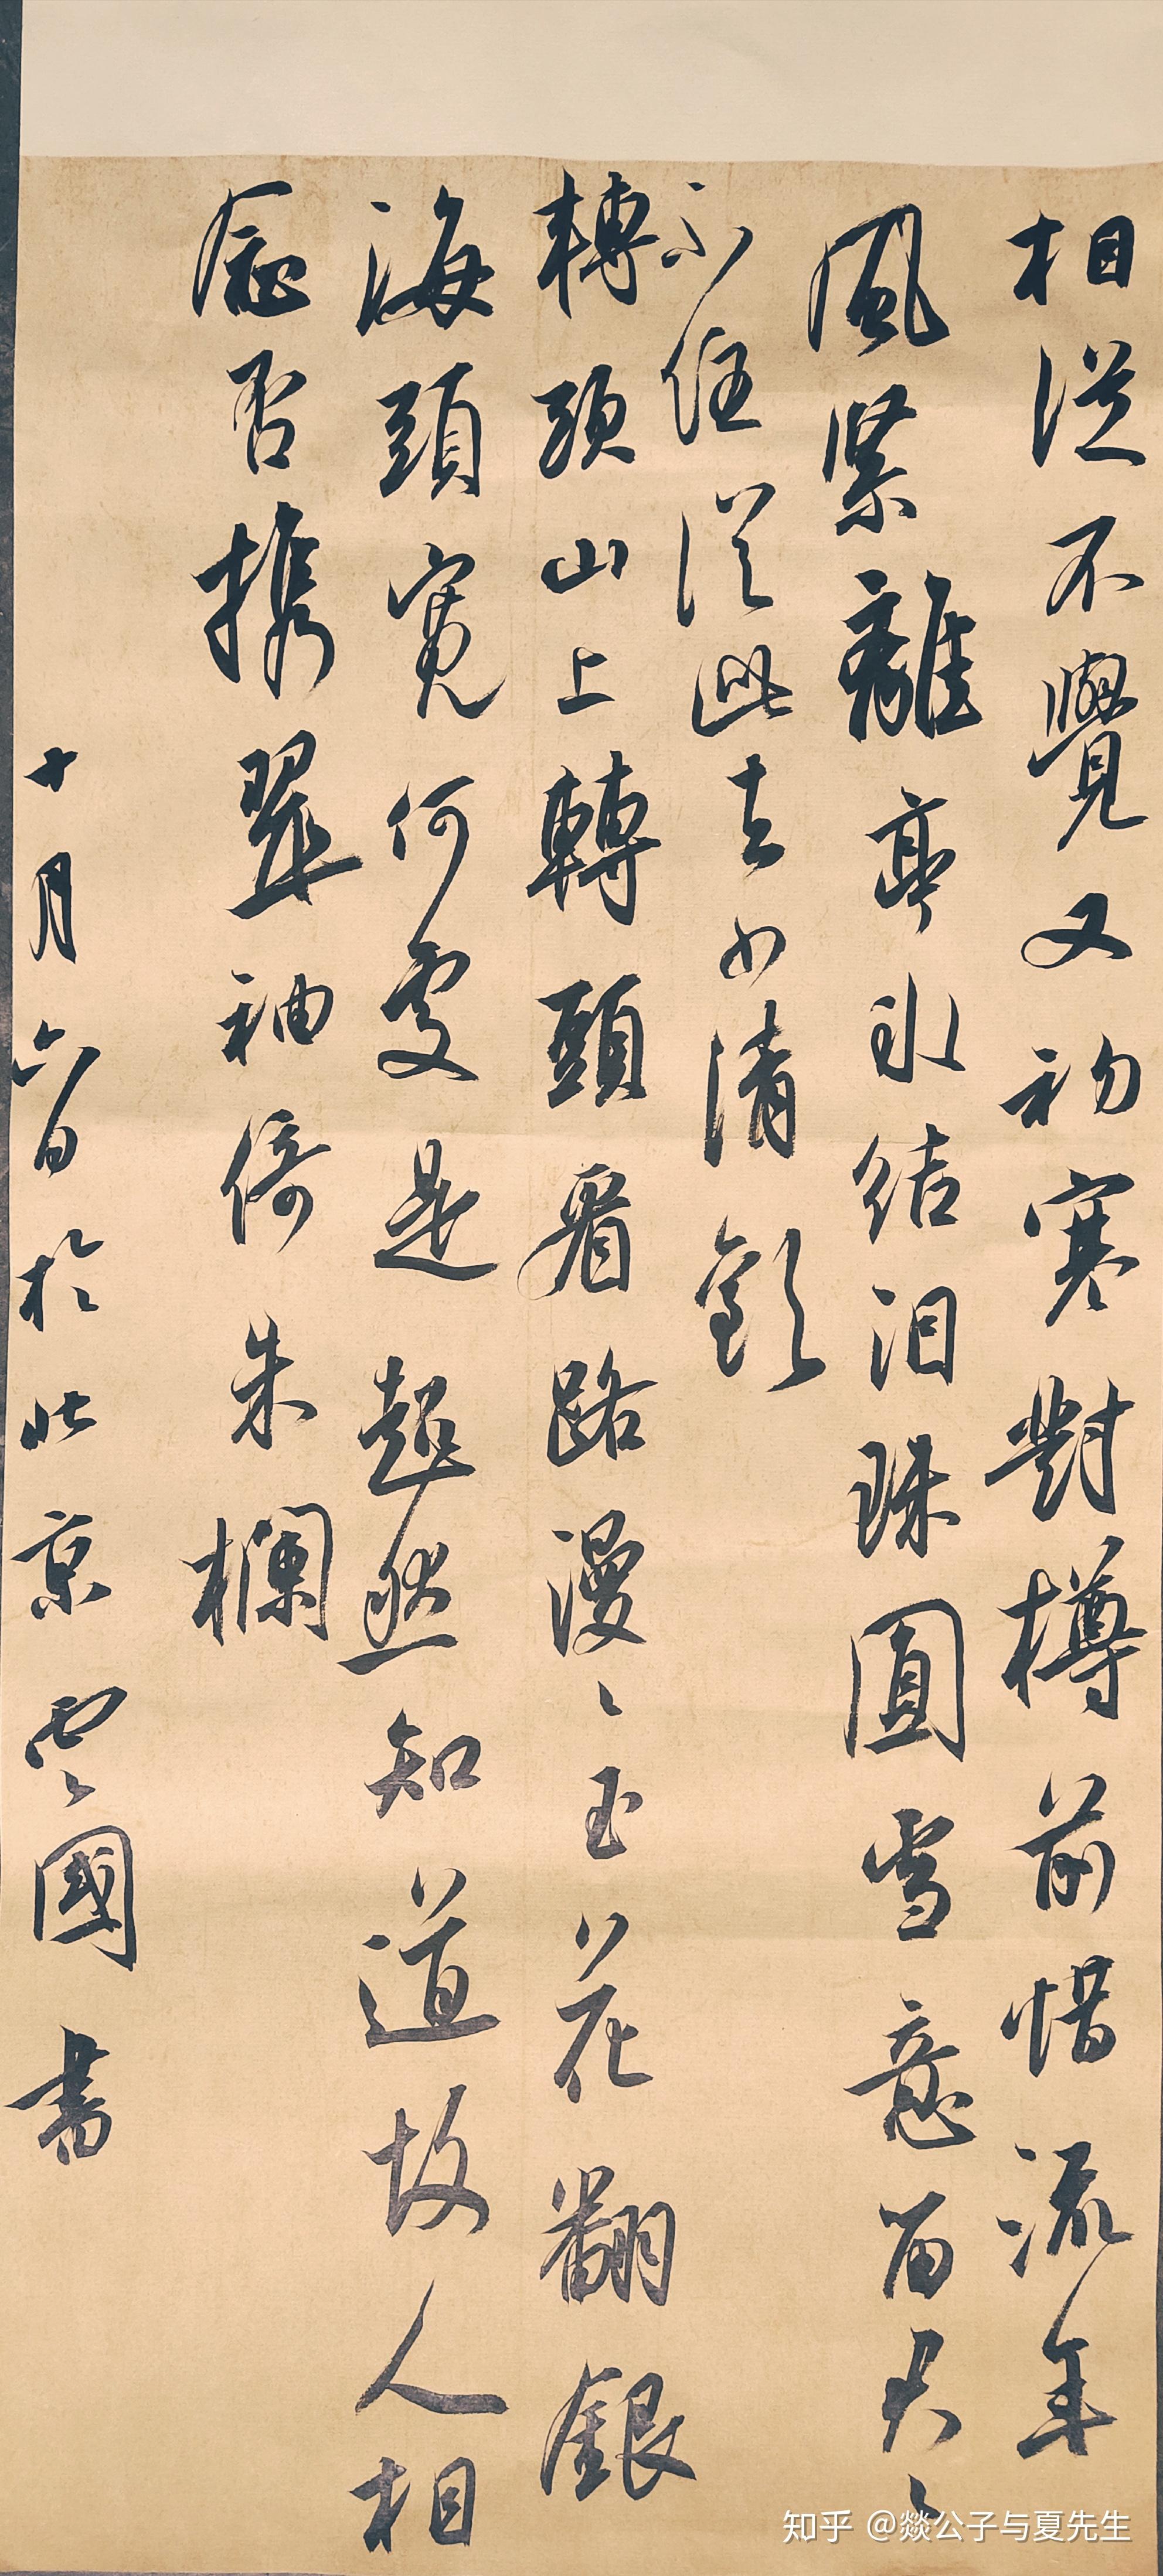 相從不覺又初寒對樽前惜流年
風緊離亭冰結泪珠圓雪意留君〻
不住從此去少清歡
轉頭山上轉頭看路漫〻玉花翻銀
海頭寬何處是超然知道故人相
念否攜翠袖倚朱欄
十月六日於北京國書
知乎 @燚公子与夏先生